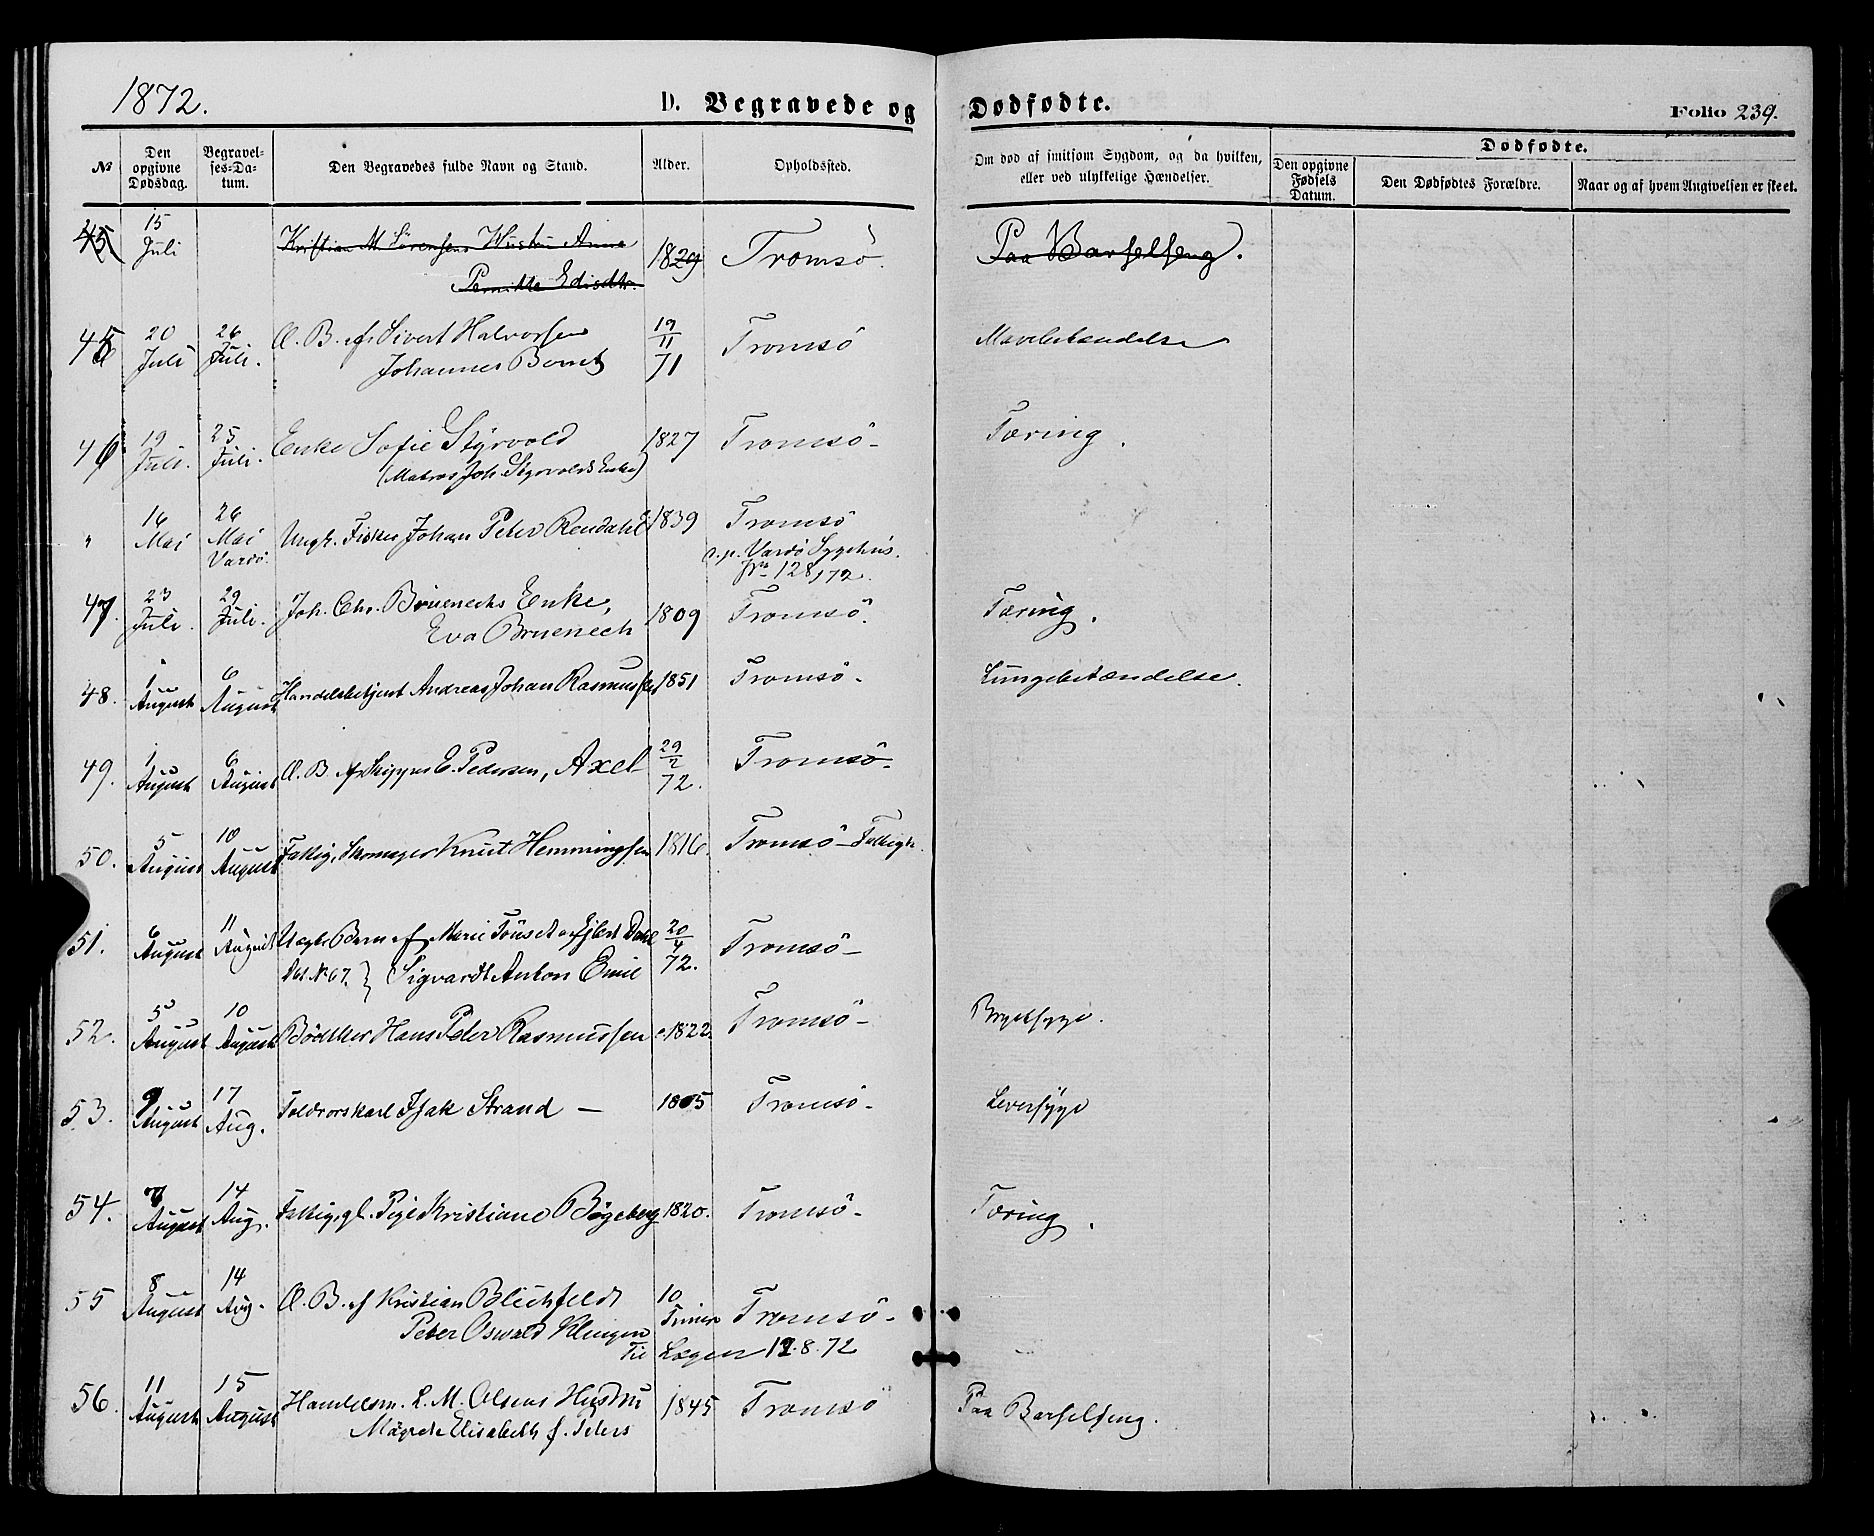 1872.
D. Begravede og Dødfødte.
Folio 239.
No
Den opgivne Dødsdag.
Begravelses-Datum.
Den Begravedes fulde Navn og Stand.
Alder.
Opholdssted.
Om død af smitsom Sygdom, og da hvilken, eller ved ulykkelige Hændelser.
Dødfødte.
Den opgivne Fødsels Datum.
Den Dødfødtes Forældre.
Naar og af hvem Angivelsen er skeet.
45 15 Juli Kristian M. Sørensens Hustru Anna 1829 Tromsö. Paa Barselseng.
Pernitte Edisdtr.
45 20 Juli 26 Juli. Æ. B. af Sivert Halvorsen 19/11 71 Tromsö Mavebetændelse
Johannes Bernt
46 19 Juli. 25 Juli. Enke Sofie Styrvold 1827 Tromsö- Tæring.
(Matros Joh. Styrvolds Enke)
" 16 Mai 26 Mai Vardö. Ungk. Fisker Johan Peter Rendahl 1839 Tromsö
c.p. Vardö Sygehus.
No 128/72.
47. 23 Juli. 29 Juli. Joh. Chr. Bruenechs Enke, 1809 Tromsö. Tæring.
Eva Bruenech
48. 1 August 6 August Handelsbetjent Andreas Johan Rasmussen 1851 Tromsö. Lungebetændelse.
49. 1 August 6 August Æ. B. af Skipper E. Pedersen, Axel 29/2 72. Tromsö-
50. 5 August 10 August Fattig, Skomager Knut Hemmingsen 1816. Tromsö- Fattigh.
51. 6 August 11 August Uægte Barn af Marie Tönset af Ejlert Dahl 20/4 72. Tromsö-
Dat. No 67. } Sigvardt Anton Emil
52. 5 August 10 August Bödtker Hans Peter Rasmussen 1822. Tromsö- Brystsyge.
53. 9 August 17 Aug. Toldrorskarl Isak Strand - 1805 Tromsö- Leversyge
54. 7 August 14 Aug. Fattig, gl. Pige Kristiane Bögeberg 1820. Tromsö- Tæring.
55 8 August 14 Aug. Æ. B. af Kristian Blichfeldt 10 Timer Tromsö-
Peter Oswald Klingen
Til Lægen 12.8.72
56. 11 August 15 August Handelsm. L. M. Olsens Hustru 1845 Tromsö Paa Barselseng.
Magrete Elisabeth f. Peters